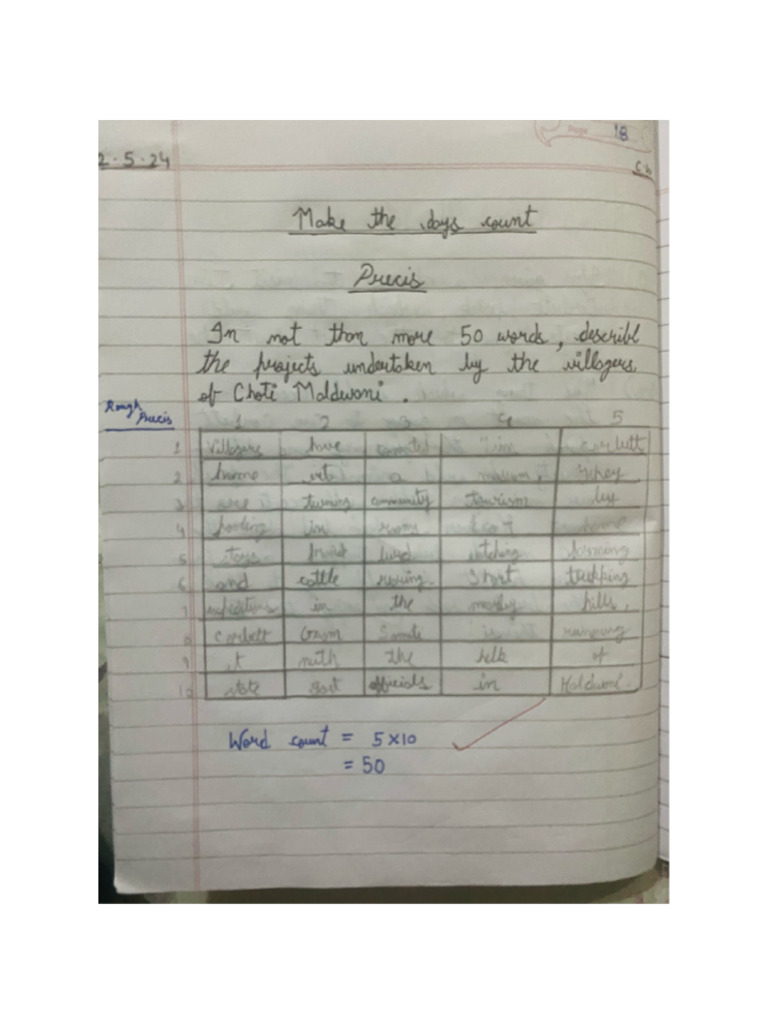 Page 18
2.5.24
C.W
Make the days count
Precis
In not than more 50 words, describe
the projects undertaken by the villagers
of Choti Haldwani.
Rough Precis
1 2 3 4 5
1 Villagers have converted "in corbett
2 home into a museum, they
3 are turning community tourism by
4 pooling in rooms for home
5 stays bird watching farming
6 and cattle rearing. Short trekking
7 expeditions in the nearby hills,
8 Corbett Gram Samiti is running
9 it with the help of
10 state govt officials in Haldwani.
Word count = 5×10
= 50